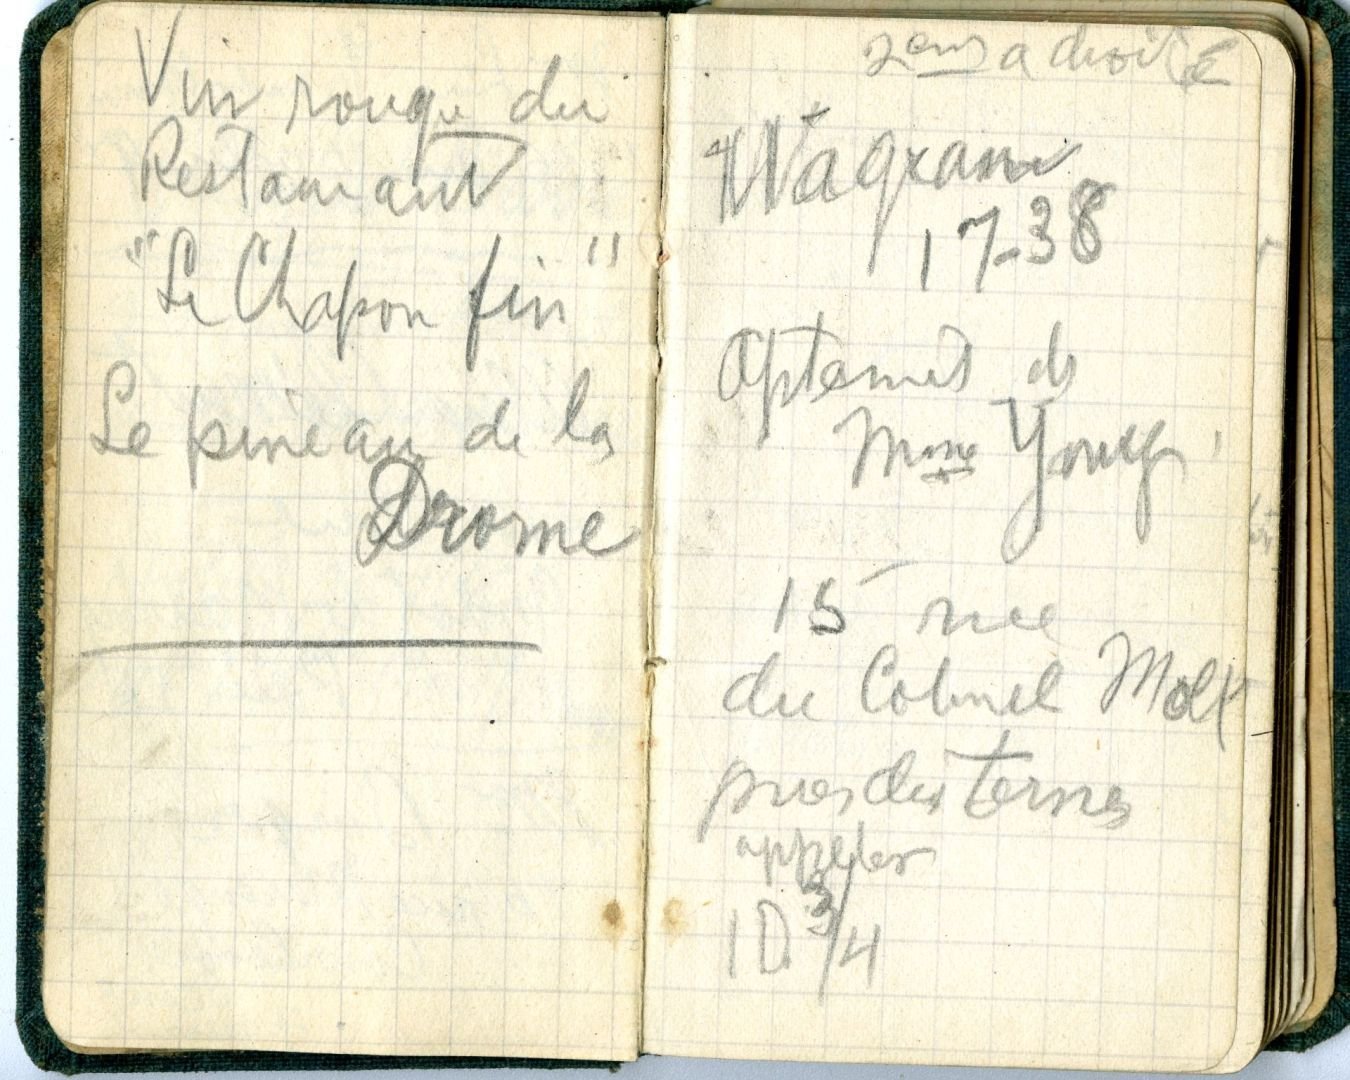 Vin rouge du
Restaurant
"Le Chapon fin"
Le pineau de la
Drome
2em a droite
Wagram
17-38
Mme
15 rue
du Colonel Moll
pres des Ternes
appeler
10 3/4